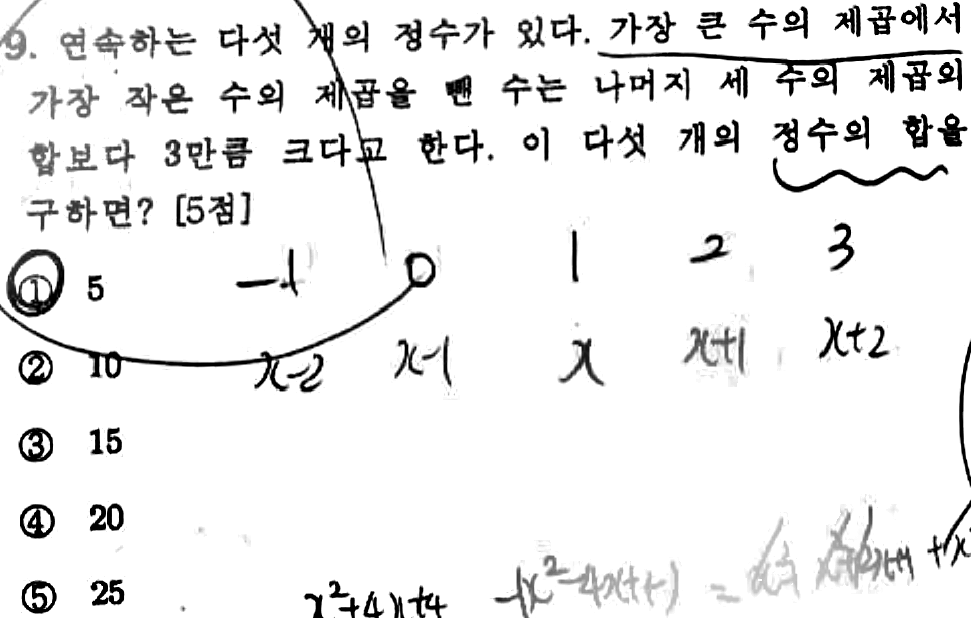 9. 연속하는 다섯 개의 정수가 있다. 가장 큰 수의 제곱에서
가장 작은 수의 제곱을 뺀 수는 나머지 세 수의 제곱의
합보다 3만큼 크다고 한다. 이 다섯 개의 정수의 합을
구하면? [5점]
① 5 -1 0 1 2 3
② 10 x-2 x-1 x x+1 x+2
③ 15
④ 20
⑤ 25 x²+4x+4 =